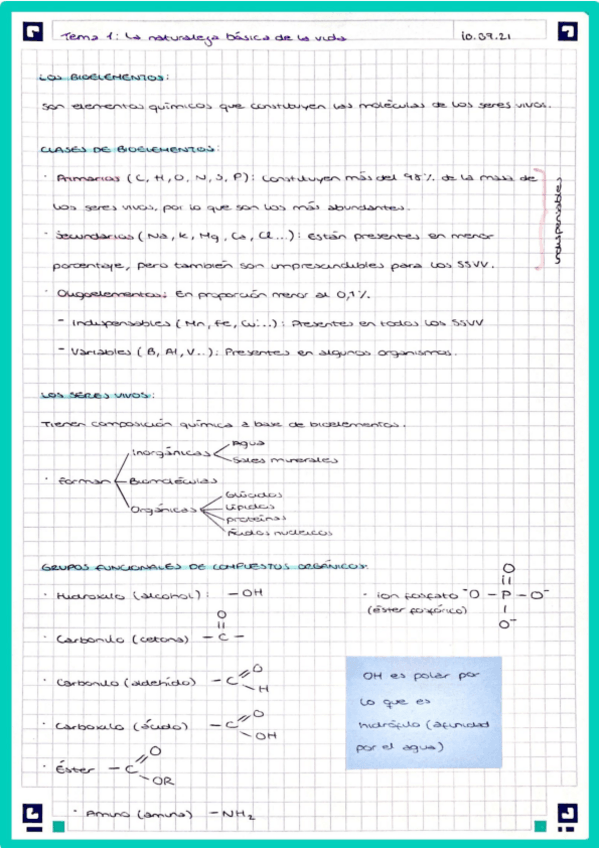 Tema 1: La naturaleza básica de la vida
10.09.21
LOS BIOELEMENTOS:
Son elementos químicos que constituyen las moléculas de los seres vivos.
CLASES DE BIOELEMENTOS:
· Primarios (C, H, O, N, S, P): Constituyen más del 98% de la masa de
los seres vivos, por lo que son los más abundantes.
· Secundarios (Na, K, Mg, Ca, Cl...): Están presentes en menor
porcentaje, pero también son imprescindibles para los SSVV.
indispensables
· Oligoelementos: En proporción menor al 0,1%.
- Indispensables (Mn, Fe, Cu...): Presentes en todos los SSVV
- Variables (B, Al, V..): Presentes en algunos organismos.
LOS SERES VIVOS:
Tienen composición química a base de bioelementos.
Agua
Inorgánicas
Sales minerales
· Forman
Biomoléculas
Glúcidos
Lípidos
Orgánicas
proteínas
Ácidos nucleicos
GRUPOS FUNCIONALES DE COMPUESTOS ORGÁNICOS:
· Hidroxilo (alcohol): -OH
· ion fosfato ⁻O - P - O⁻
O
(éster fosfórico)
O⁻
O
· Carbonilo (cetona) - C -
· Carbonilo (aldehído) - C
O
H
· Carboxilo (ácido) - C
O
OH
· Éster - C
O
OR
· Amino (amina) - NH₂
OH es polar por
lo que es
hidrófilo (afinidad
por el agua)